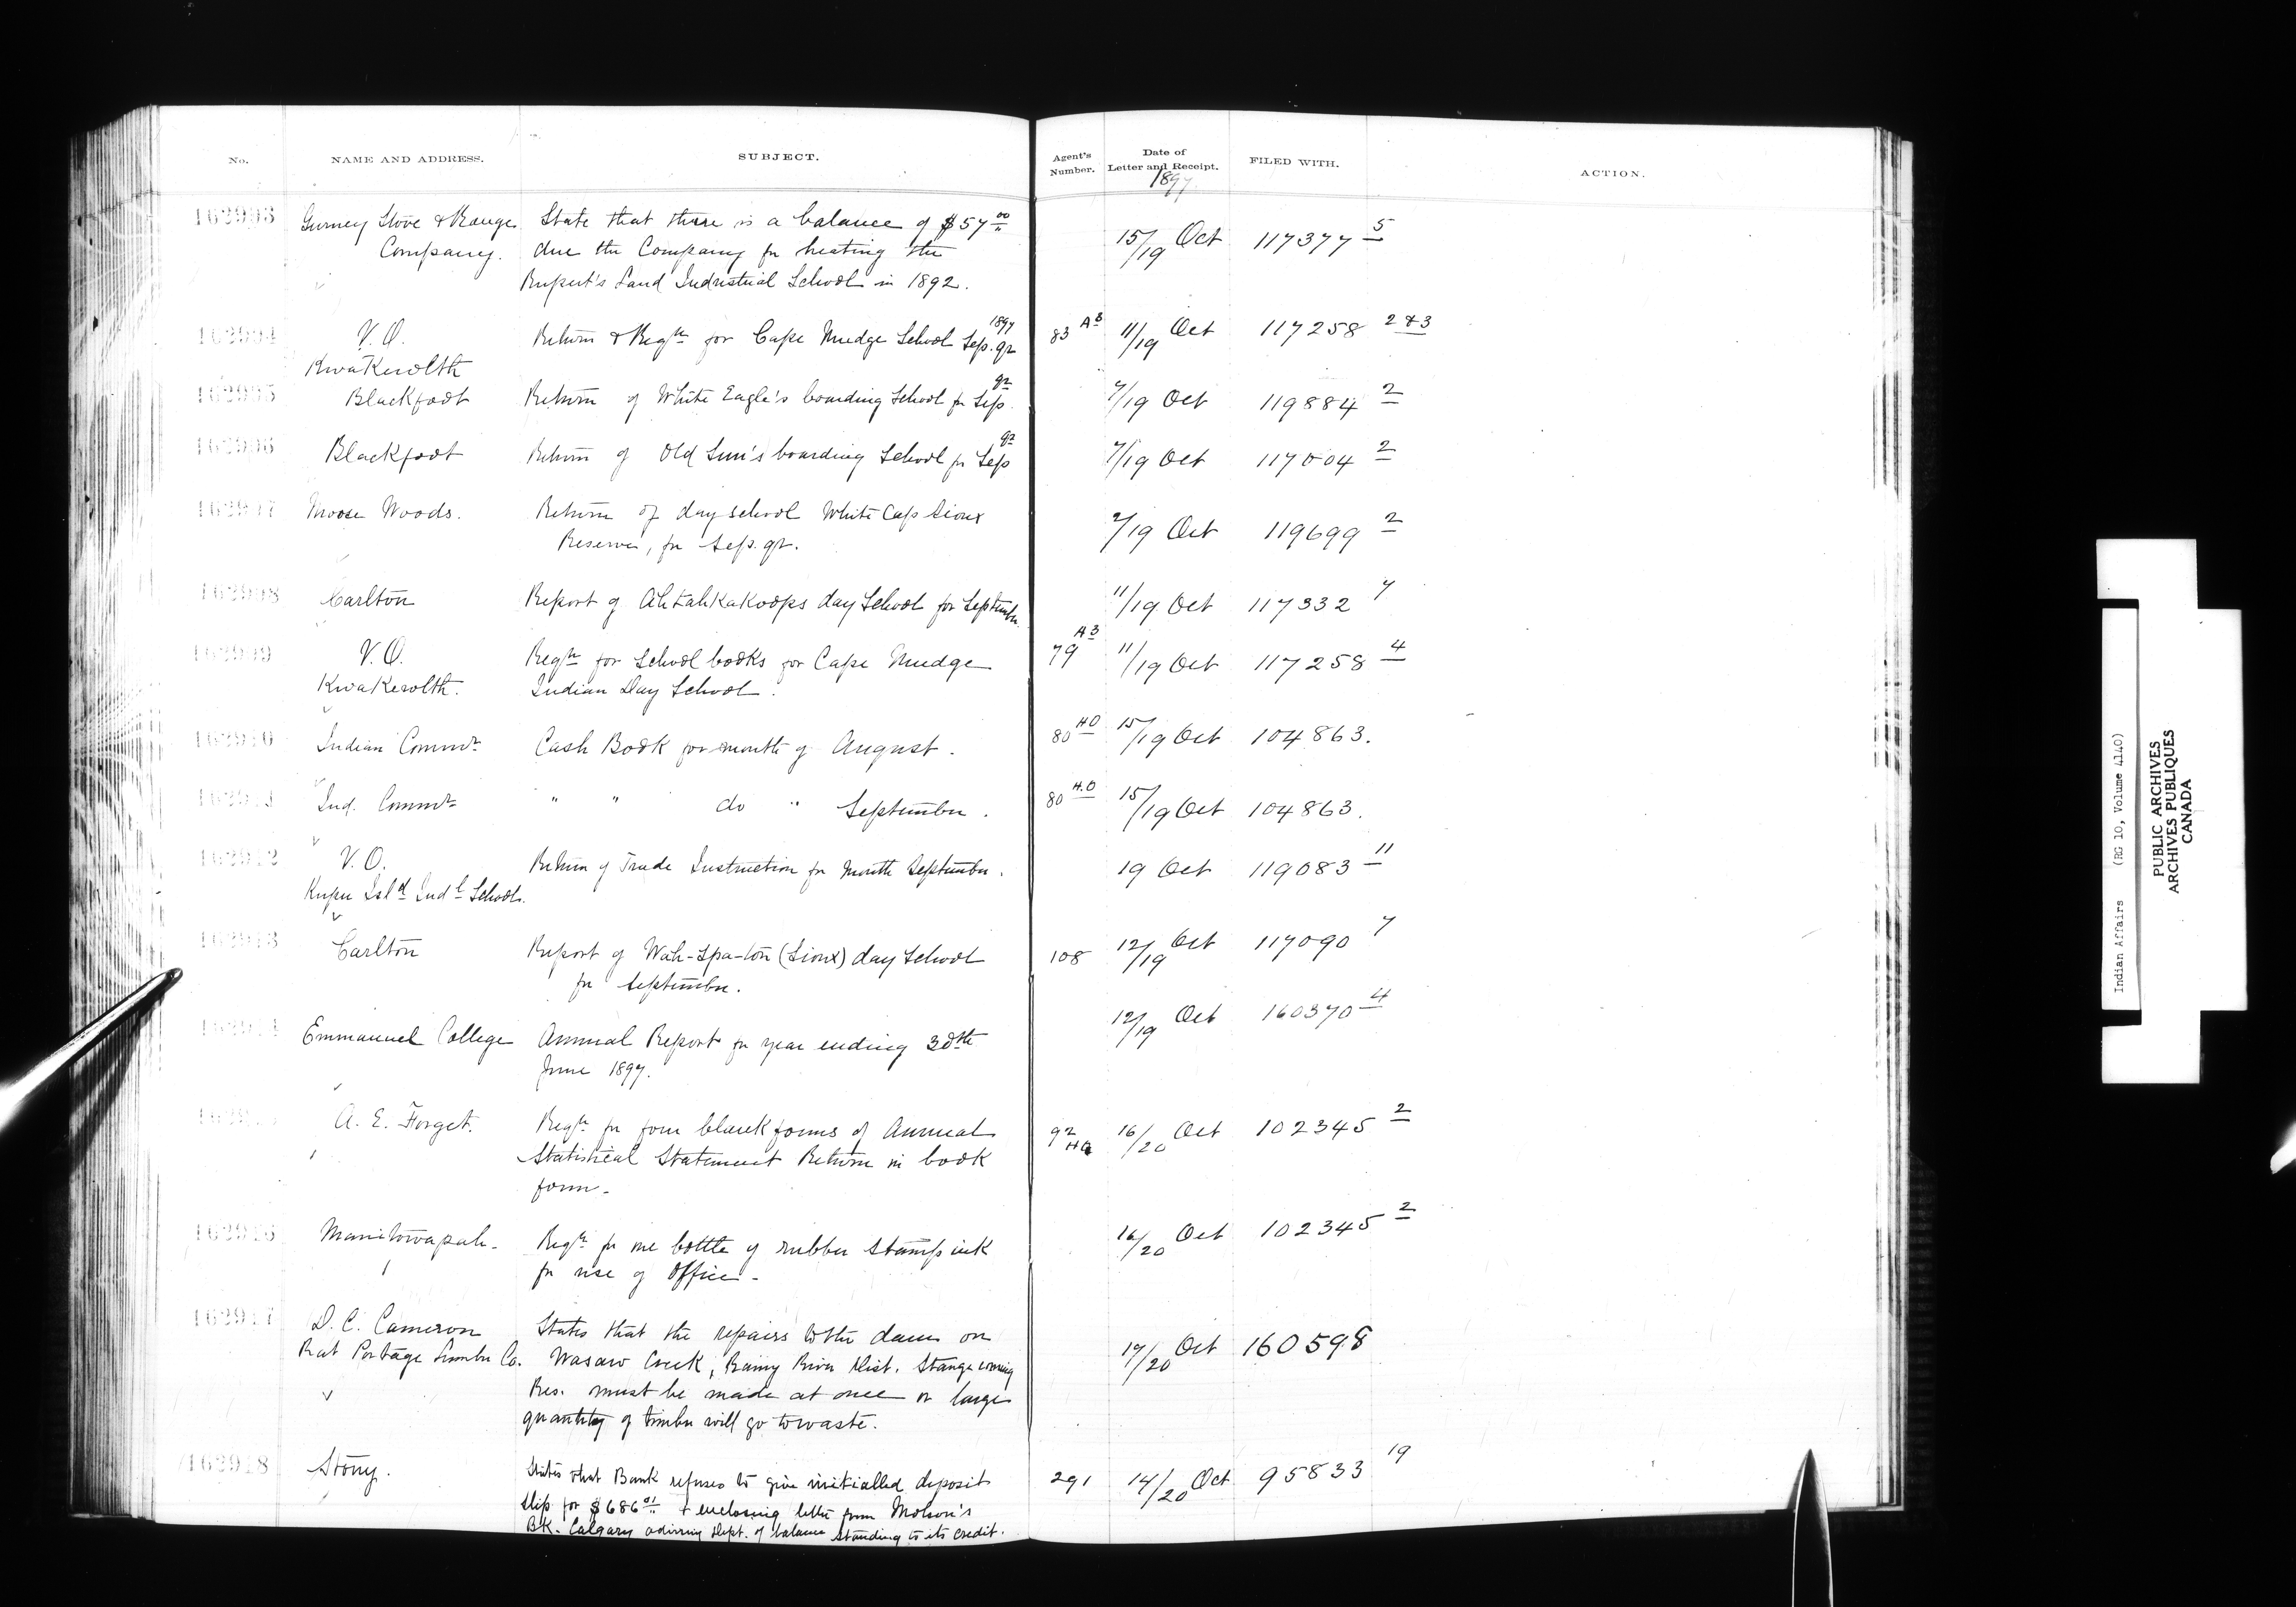 No. NAME AND ADDRESS. SUBJECT. Agent's Number. Date of Letter and Receipt. FILED WITH. ACTION.
1897
162903 Gurney Stove & Range State that there is a balance of $57 00
Company. due the Company for heating the 15/19 Oct 117377 5
Rupert's Land Industrial School in 1892.
162904 V.O. Return & Reqn for Cape Mudge School Sep. qr 1897 83 A3 11/19 Oct 117258 2 & 3
Kwakewlth
162905 Blackfoot Return of White Eagle's boarding School for Sep. qr 7/19 Oct 119884 2
162906 Blackfoot Return of Old Sun's boarding School for Sep qr 7/19 Oct 117004 2
162907 Moose Woods. Return of day school White Cap Sioux
Reserve, for Sep. qr. 7/19 Oct 119699 2
162908 Carlton Report of Ahtahkakoops day School for September 11/19 Oct 117332 7
162909 V.O. Reqn for School books for Cape Mudge 79 A3 11/19 Oct 117258 4
Kwakewlth. Indian Day School.
162910 Indian Commr Cash Book for month of August. 80 HO 15/19 Oct 104863.
162911 Ind. Commr " " do " September. 80 H.O 15/19 Oct 104863.
162912 V.O. Return of Trade Instruction for Month September. 19 Oct 119083 11
Kuper Isld Indl School.
162913 Carlton Report of Wah-spa-ton (Sioux) day School 108 12/19 Oct 117090 7
for September.
162914 Emmanuel College Annual Report for year ending 30th 12/19 Oct 160370 4
June 1897.
162915 A. E. Forget. Reqn for four blank forms of Annual 92 HO 16/20 Oct 102345 2
Statistical Statement Return in book
form.
162916 Manitowapah. Reqn for one bottle of rubber stamp ink 16/20 Oct 102345 2
for use of Office.
162917 D. C. Cameron States that the repairs to the dam on
Rat Portage Lumber Co. Wasaw Creek, Rainy River Dist. Stangecoming 17/20 Oct 160598
Res. must be made at once or large
quantity of timber will go to waste.
162918 Stony. States that Bank refuses to give initialled deposit 291 14/20 Oct 95833 19
slip for $686 01 & enclosing letter from Molson's
Bk. Calgary advising Dept. of balance standing to its credit.
Indian Affairs (RG 10, Volume 4140)
PUBLIC ARCHIVES
ARCHIVES PUBLIQUES
CANADA